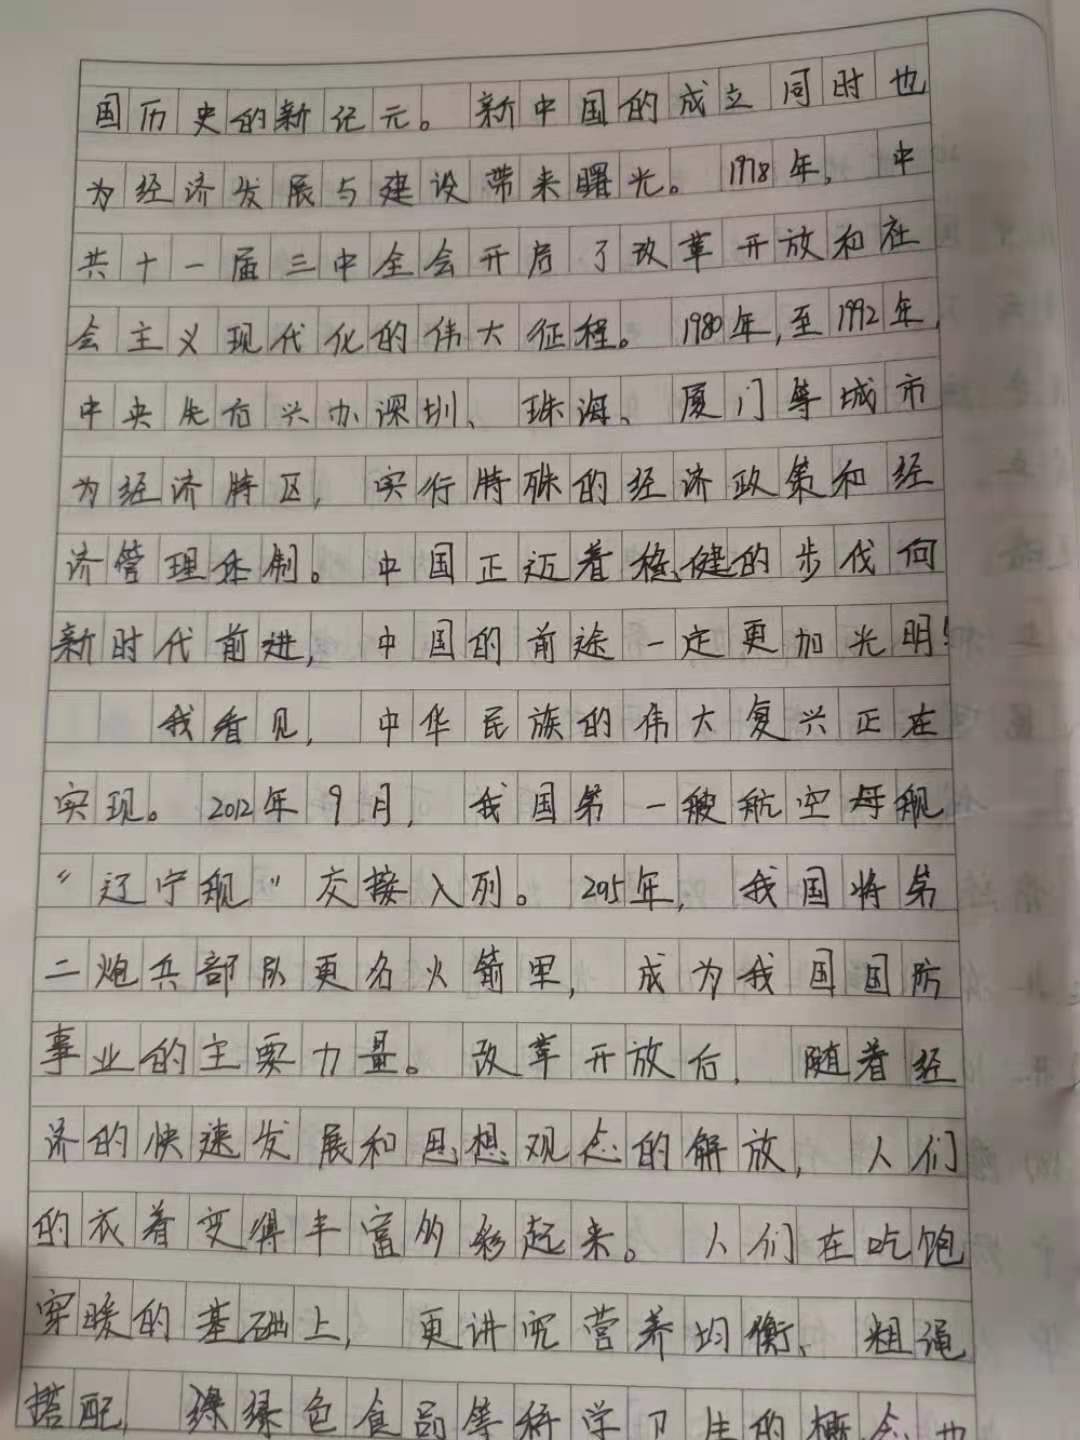 国历史的新纪元。新中国的成立同时也
为经济发展与建设带来曙光。1978年，中
共十一届三中全会开启了改革开放和社
会主义现代化的伟大征程。1980年，至1992年，
中央先后兴办深圳、珠海、厦门等城市
为经济特区，实行特殊的经济政策和经
济管理体制。中国正迈着稳健的步伐向
新时代前进，中国的前途一定更加光明！
我看见，中华民族的伟大复兴正在
实现。2012年9月，我国第一艘航空母舰
“辽宁舰”交接入列。2015年，我国将第
二炮兵部队更名火箭军，成为我国国防
事业的主要力量。改革开放后，随着经
济的快速发展和思想观念的解放，人们
的衣着变得丰富多彩起来。人们在吃饱
穿暖的基础上，更讲究营养均衡、粗绳
搭配，绿色食品等科学卫生的概念也